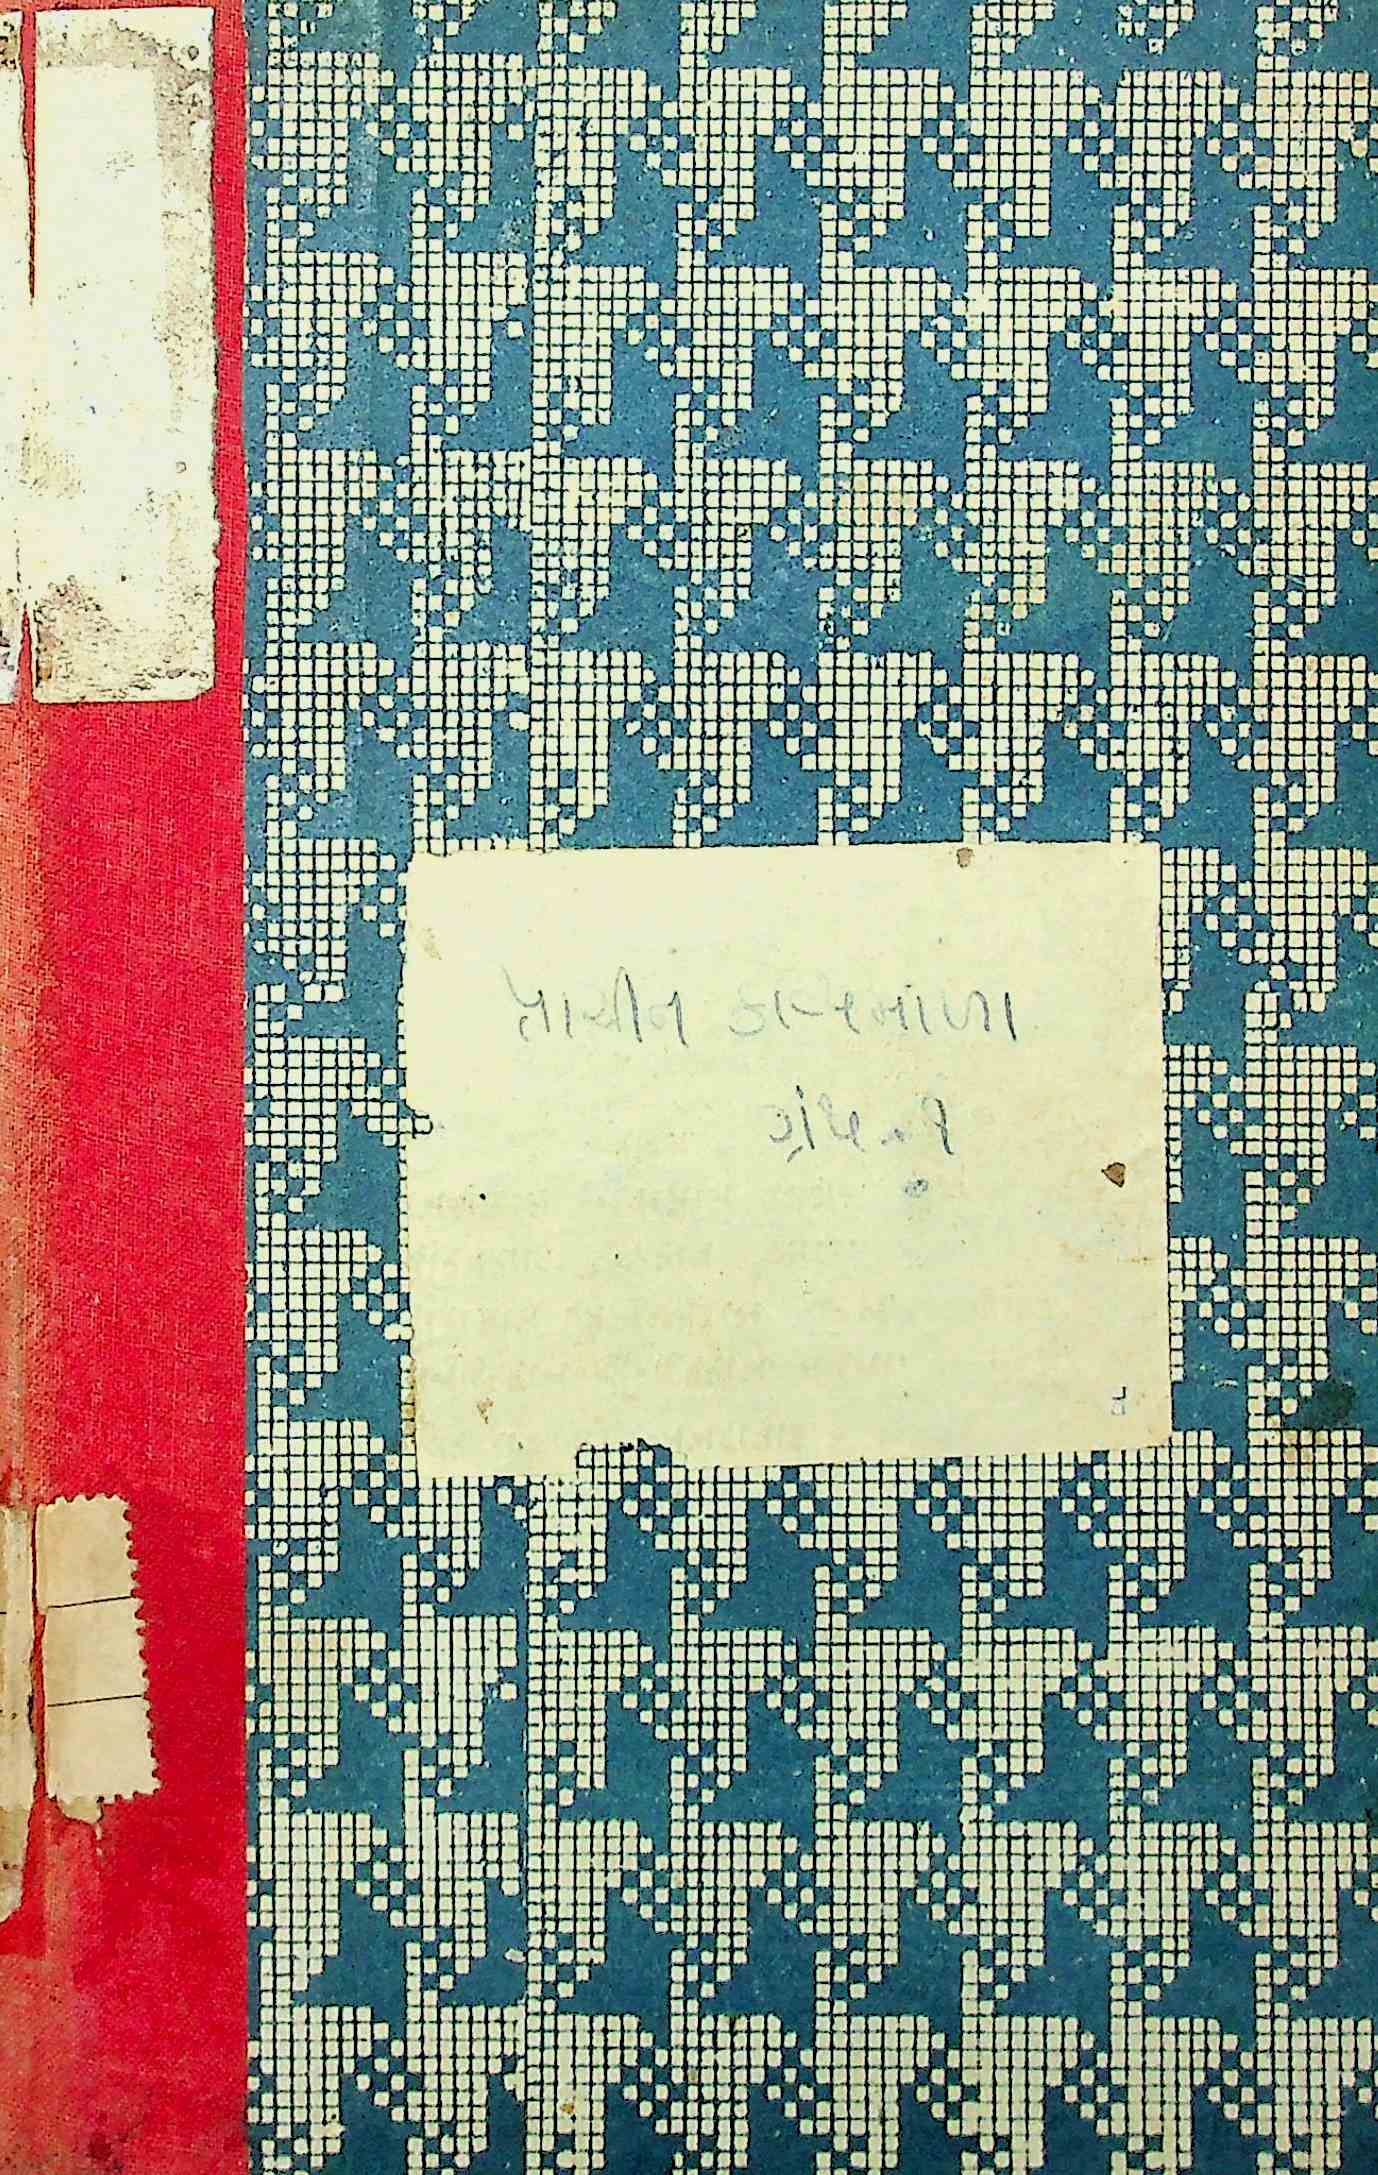 પ્રાચીન કાવ્યમાળા
ગ્રંથ - ૧